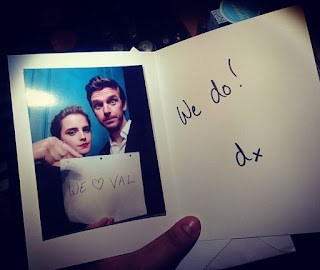 WE ♡ VAL
We do!
dx